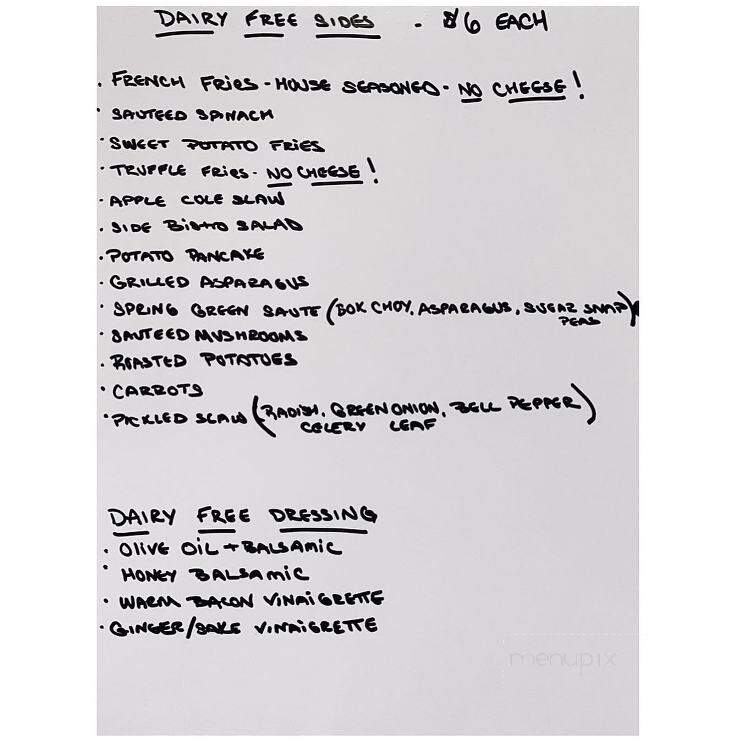 DAIRY FREE SIDES - $6 EACH
· FRENCH FRIES - HOUSE SEASONED - NO CHEESE!
· SAUTEED SPINACH
· SWEET POTATO FRIES
· TRUFFLE FRIES - NO CHEESE!
· APPLE COLE SLAW
· SIDE BISTRO SALAD
· POTATO PANCAKE
· GRILLED ASPARAGUS
· SPRING GREEN SAUTE (BOK CHOY, ASPARAGUS, SUGAR SNAP)
PEAS
· SAUTEED MUSHROOMS
· ROASTED POTATOES
· CARROTS
· PICKLED SLAW (RADISH, GREEN ONION, BELL PEPPER)
CELERY LEAF
DAIRY FREE DRESSING
· OLIVE OIL + BALSAMIC
· HONEY BALSAMIC
· WARM BACON VINAIGRETTE
· GINGER/SAKE VINAIGRETTE
menupix